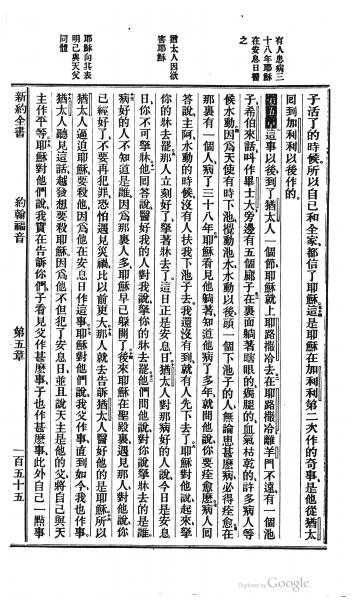 有人患病三
十八年耶穌
在安息日醫
之
猶太人因欲
害耶穌
耶穌向其表
明己與天父
同體
子活了的時候所以自己和全家都信了耶穌這是耶穌在加利利第二次作的奇事是他從猶太
回到加利利以後作的
第五章 這事以後到了猶太人一個節耶穌就上耶路撒冷去在耶路撒冷離羊門不遠有一個池
子希伯來話叫作畢士大旁邊有五個廊子在裏面躺著瞎眼的瘸腿的血氣枯乾的許多病人等
候水動因爲天使有時下池攪動池水水動以後頭一個下池子的人無論患甚麼病必得痊愈在
那裏有一個人病了三十八年耶穌看見他躺著知道他病了多年就問他說你要痊愈麼病人回
答說主阿水動的時候沒有人扶我下池子去我還沒有到就有人先下去了耶穌對他說起來拏
你的牀去罷那人立刻好了拏著牀去了這日正是安息日猶太人對那病好的人說今日是安息
日你不可拏牀他回答說醫好我的人對我說拏你的牀去罷他們問他說對你說拏牀去的是誰
病好的人不知道是誰因爲那裏人多耶穌早已躲開了後來耶穌在聖殿裏遇見那人對他說你
已經好了不要再犯罪恐怕遇見災禍比以前更大那人就去告訴猶太人醫好他的是耶穌所以
猶太人逼迫耶穌要殺他因爲他在安息日作這事耶穌對他們說我父作事直到如今我也作事
猶太人聽見這話越發想要殺耶穌因爲他不但犯了安息日並且說天主是他的父將自己與天
主作平等耶穌對他們說我實在告訴你們子看見父作甚麼事子也作甚麼事此外自己一點事
新約全書 約翰福音 第五章 一百五十五
Digitized by Google